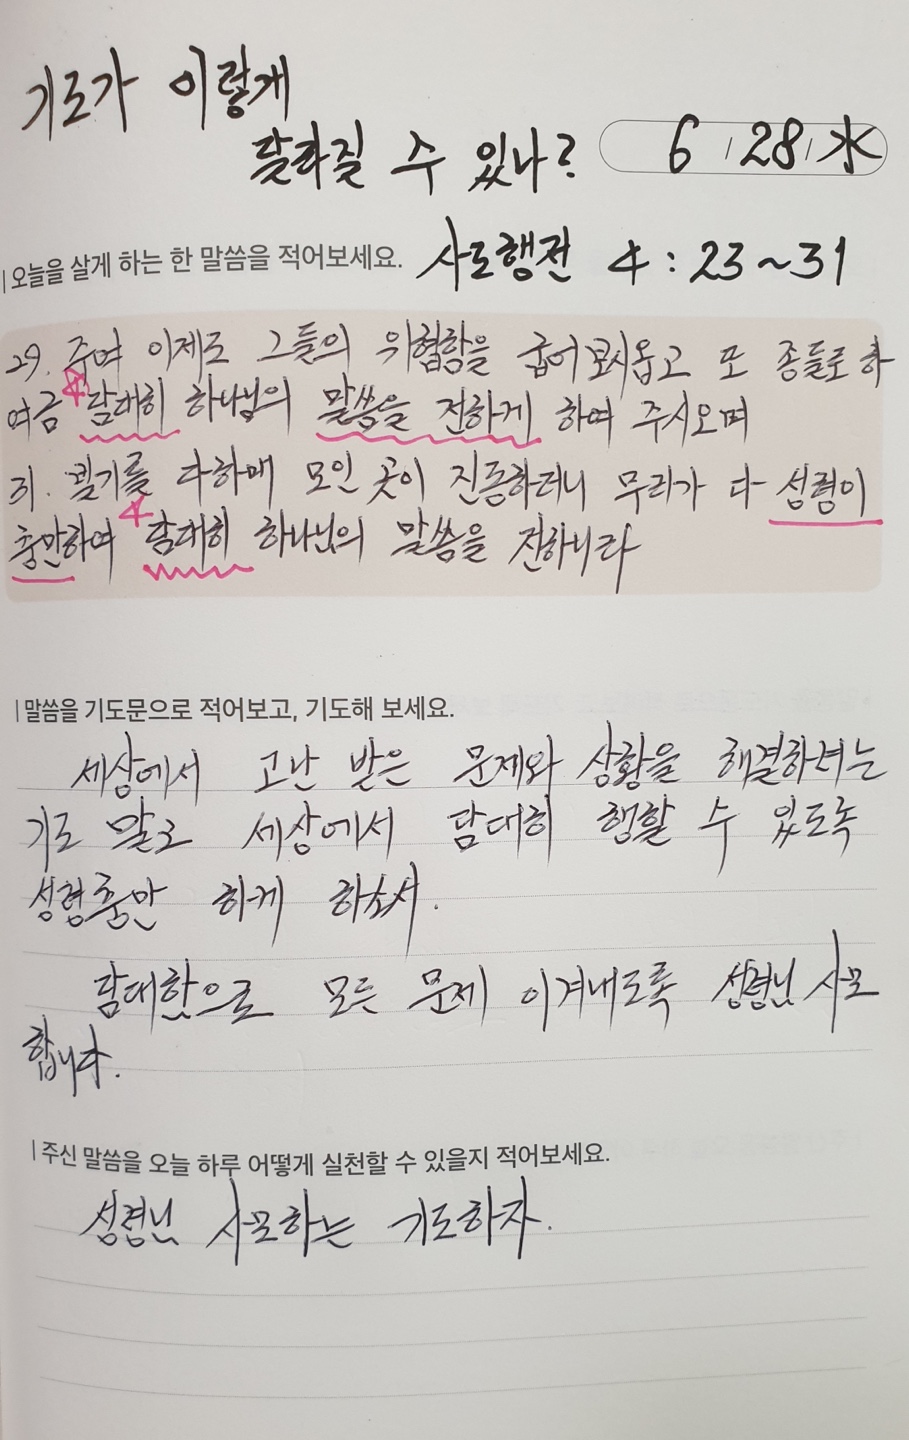 기도가 이렇게
달라질 수 있나? 6 / 28 / 水
오늘을 살게 하는 한 말씀을 적어보세요. 사도행전 4 : 23 ~ 31
29. 주여 이제도 그들의 위협함을 굽어보시옵고 또 종들로 하
여금 담대히 하나님의 말씀을 전하게 하여 주시오며
31. 빌기를 다하매 모인 곳이 진동하더니 무리가 다 성령이
충만하여 담대히 하나님의 말씀을 전하니라
말씀을 기도문으로 적어보고, 기도해 보세요.
세상에서 고난 받은 문제와 상황을 해결하려는
기도 말고 세상에서 담대히 행할 수 있도록
성령충만 하게 하소서.
담대함으로 모든 문제 이겨내도록 성령님 사모
합니다.
주신 말씀을 오늘 하루 어떻게 실천할 수 있을지 적어보세요.
성령님 사모하는 기도하자.